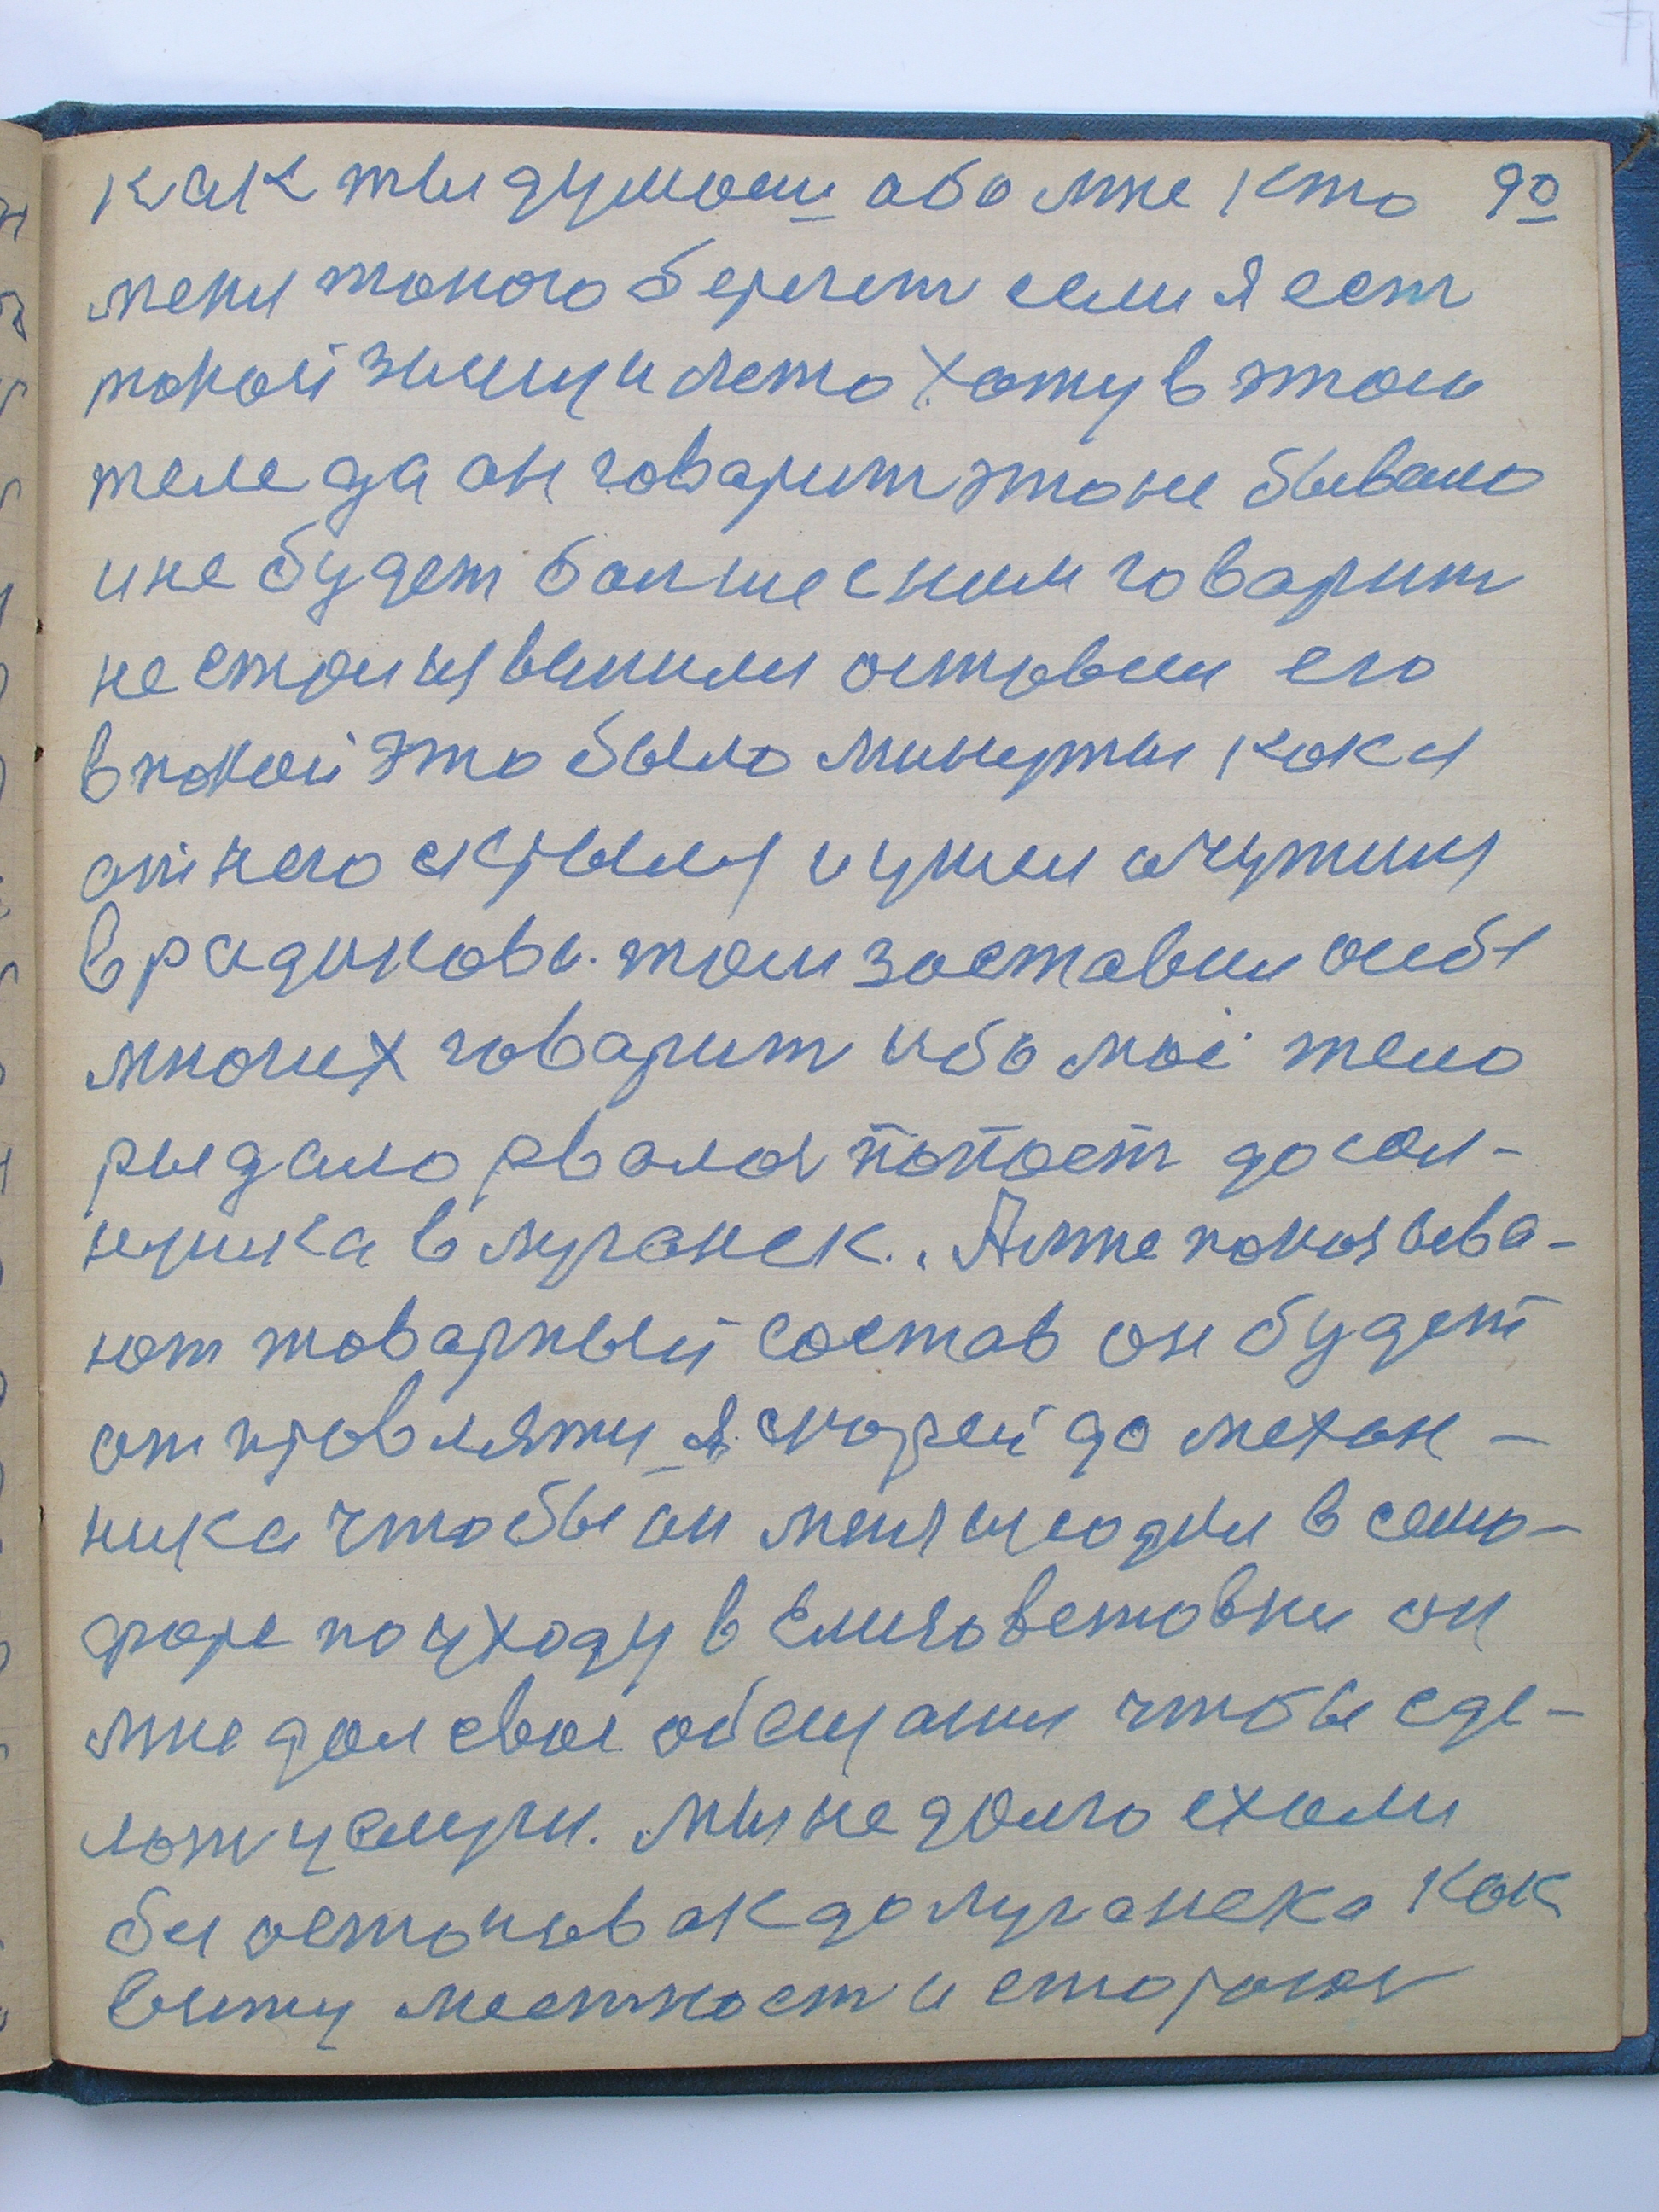 как ты думаеш обо мне кто 90
меня токого бережет если я ест
токой зиму и лето хожу в этом
теле да он говарит это не бывало
и не будет болше с ним говарит
не стал извинилы оставил его
в покои это было минуты кока я
от него скрылся и ушел очутился
в радиковы. там заставил себя
многих говарит ибо моё тело
рыдало рвалос попаст до сол-
нушка в луганск. А мне показыва-
ют товарный состав он будет
отправляти я скорей до механ-
ника чтобы он меня усодил в сема-
форе по уходу в Елизоветовки он
мне дал свое обещания чтобы сде-
лат услуги. мы не долго ехали
бы остоновак до луганска как
вижу местност и сторона